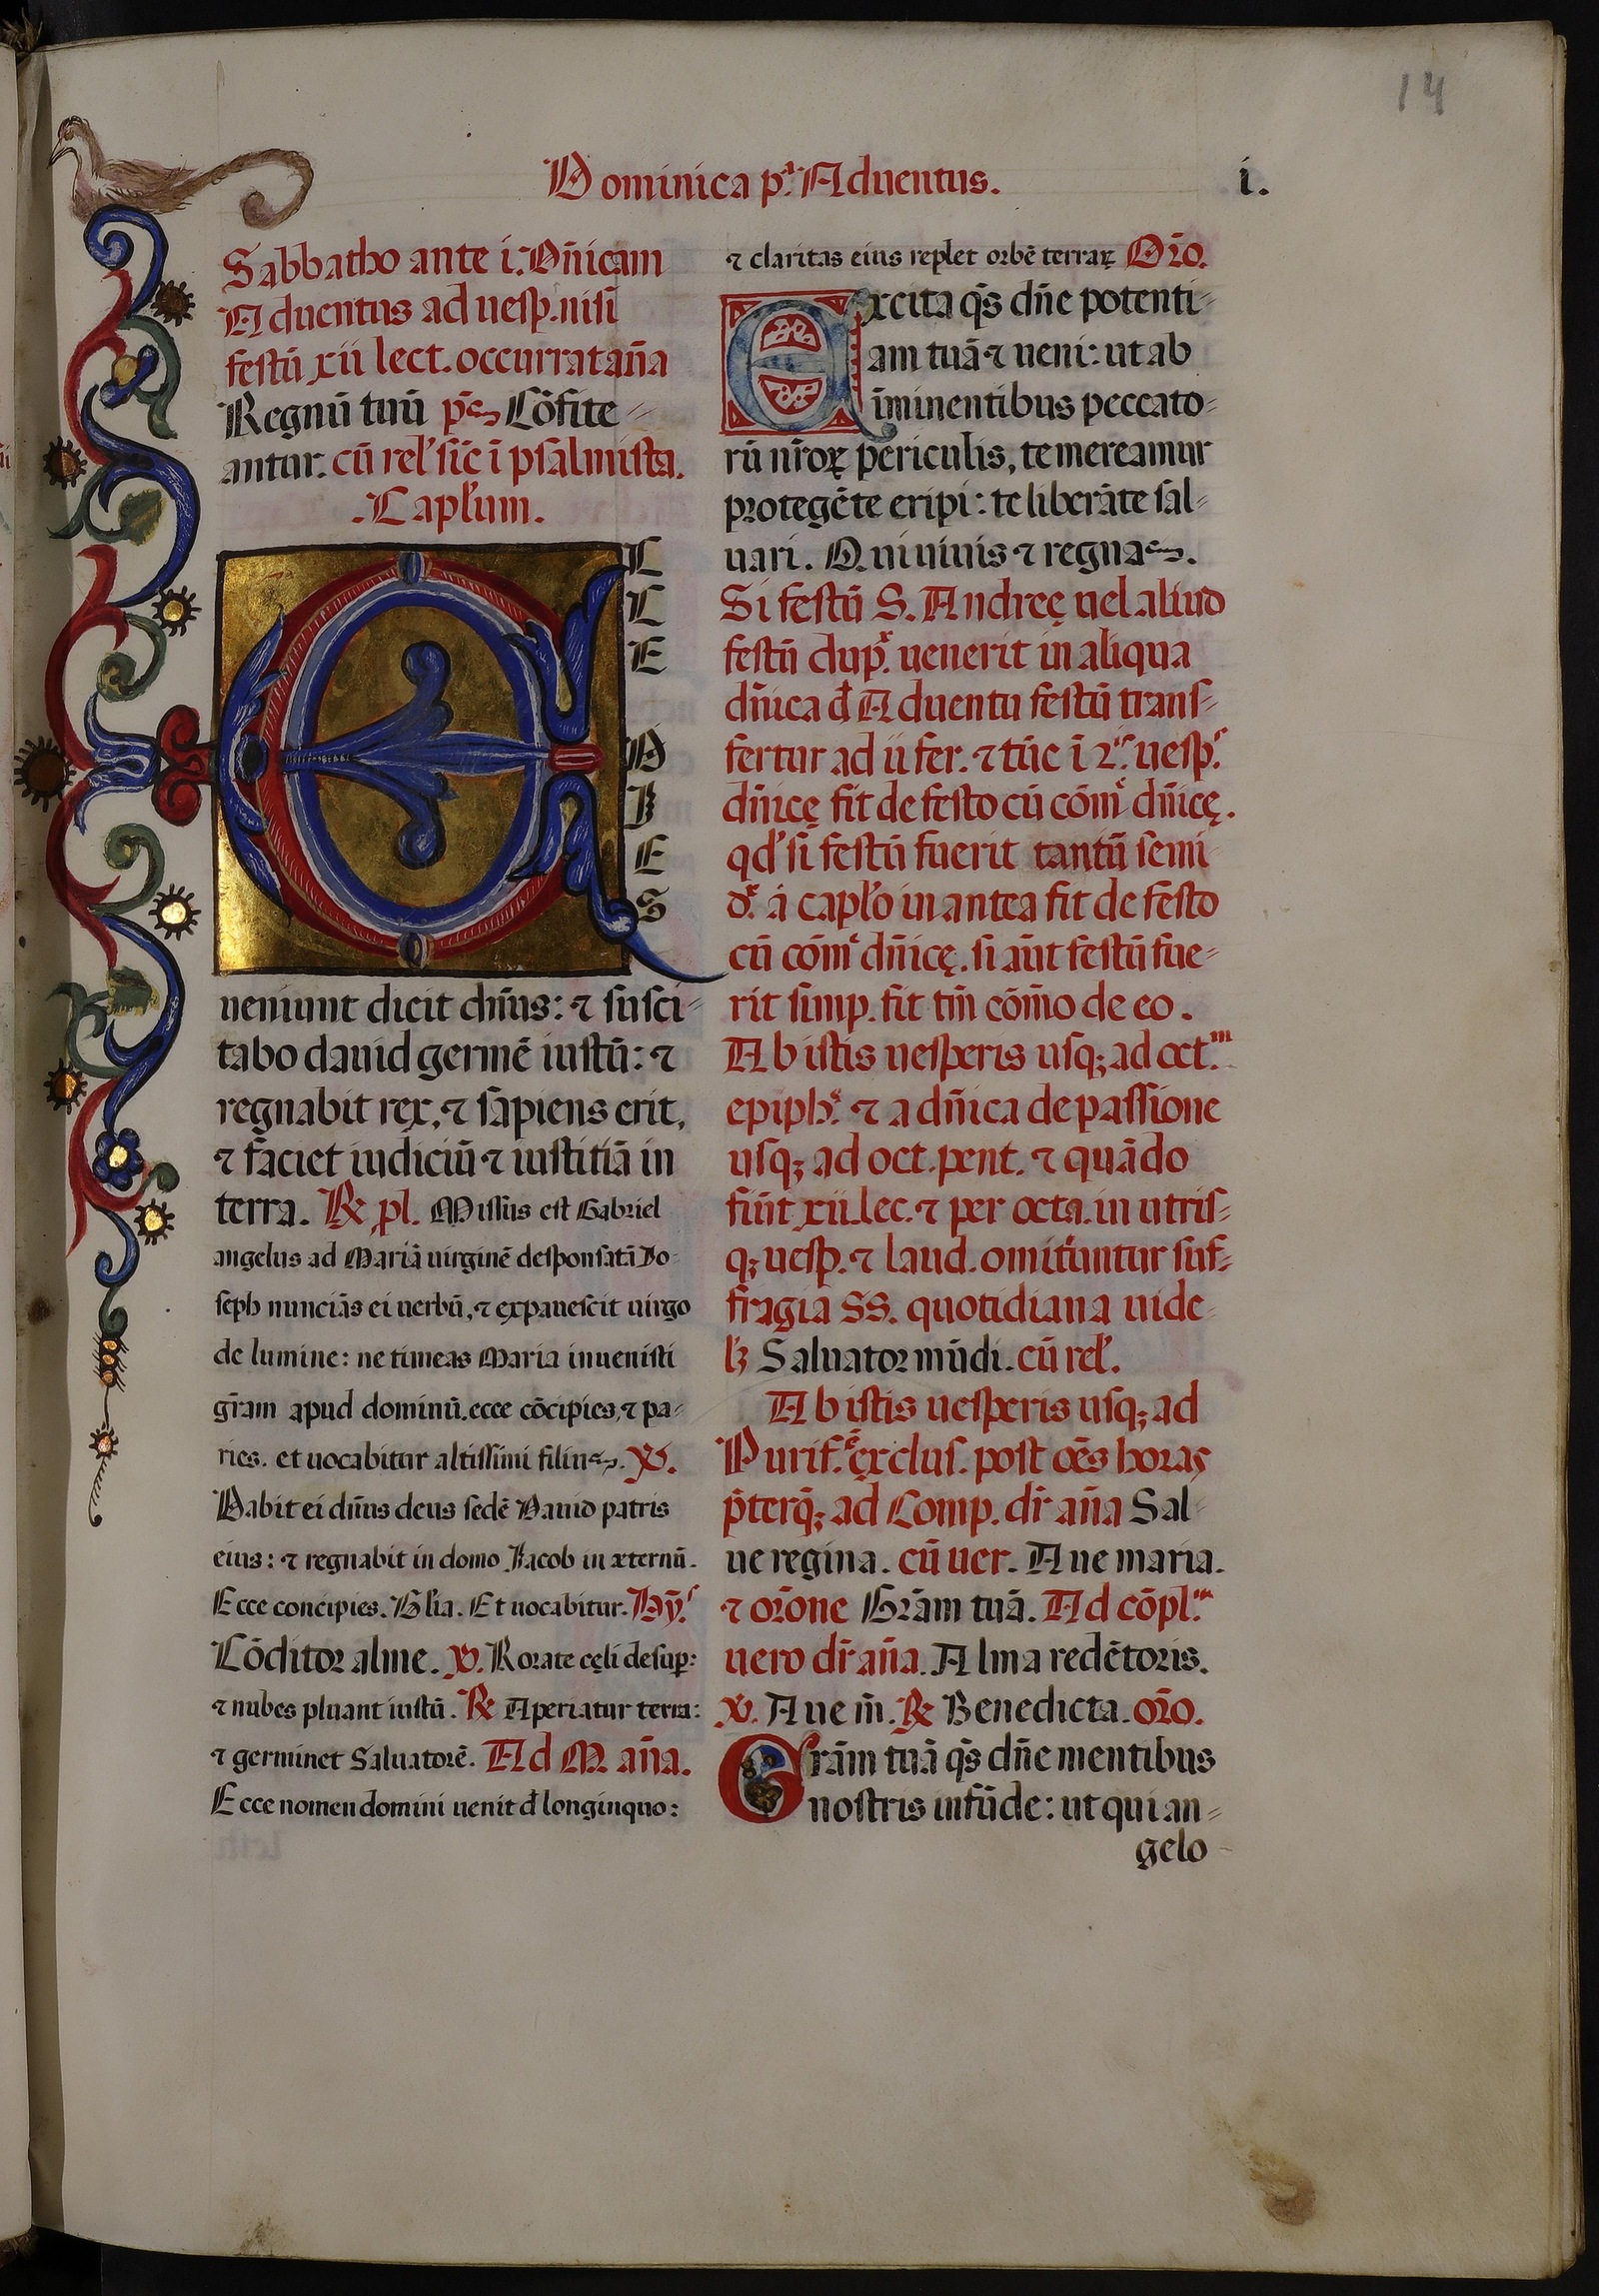 14
Dominica pª. Aduentus.
i.
Sabbatho ante i. Dñicam
Aduentus ad uesp. nisi
festū xii lect. occurrat añа
Regnū tuū ps. Cōfite-
antur. cū rel' sic ī psalmista.
.Capl'um.
E
C
C
E
D
I
E
S
ueniunt dicit dñus: ⁊ susci-
tabo dauid germē iustū: ⁊
regnabit rex, ⁊ sapiens erit,
⁊ faciet iudiciū ⁊ iustitiā in
terra. ℟ pl. Missus est Gabriel
angelus ad Mariā uirginē desponsatā Io-
seph nunciās ei uerbū, ⁊ expauescit uirgo
de lumine: ne timeas Maria inuenisti
grām apud dominū. ecce cōcipies, ⁊ pa-
ries. et uocabitur altissimi filius. ℣.
Dabit ei dñus deus sedē Dauid patris
eius: ⁊ regnabit in domo Jacob in æternū.
Ecce concipies. Gl'ia. Et uocabitur. Hy.ˢ
Cōditor alme. ℣. Rorate cęli desuper:
⁊ nubes pluant iustū. ℟ Aperiatur terra:
⁊ germinet Saluatorē. Ad M. añа.
Ecce nomen domini uenit đ longinquo:
⁊ claritas eius replet orbē terraꝝ Orō.
Excita q̄s dñe potenti-
am tuā ⁊ ueni: ut ab
īminentibus peccato-
rū nr̄oꝝ periculis, te mereamur
protegēte eripi: te liberāte sal-
uari. Qui uiuis ⁊ regnas.
Si festū S. Andreę uel aliud
festū dup. uenerit in aliqua
dñica đ Aduentu festū trans-
fertur ad ii fer. ⁊ tūc ī 2.ˢ uesp.ˢ
dñicę fit de festo cū cōm dñicę.
qd' si festū fuerit tantū semi
d. á capl'o in antea fit de festo
cū cōm dñicę. si aūt festū fue-
rit simp. fit tm̄ cōm̄o de eo.
Ab istis uesperis usq; ad oct.ᵐ
epiph. ⁊ a dñica de passione
usq; ad oct. pent. ⁊ quādo
fiūt xii. lec. ⁊ per octa. in utris-
q; uesp. ⁊ laud. omittuntur suf-
fragia SS. quotidiana uide
lꝫ Saluator mūdi. cū rel'.
Ab istis uesperis usq; ad
Purif. exclus. post oēs horas
p̄terq; ad Comp. dr̄ añа Sal-
ue regina. cū uer. Aue maria.
⁊ orōne Grām tuā. Ad cōpl.ᵐ
uero dr̄ añа. Alma redētoris.
℣. Aue m̄. ℟ Benedicta. orō.
Grām tuā q̄s dñe mentibus
nostris infūde: ut qui an-
gelo